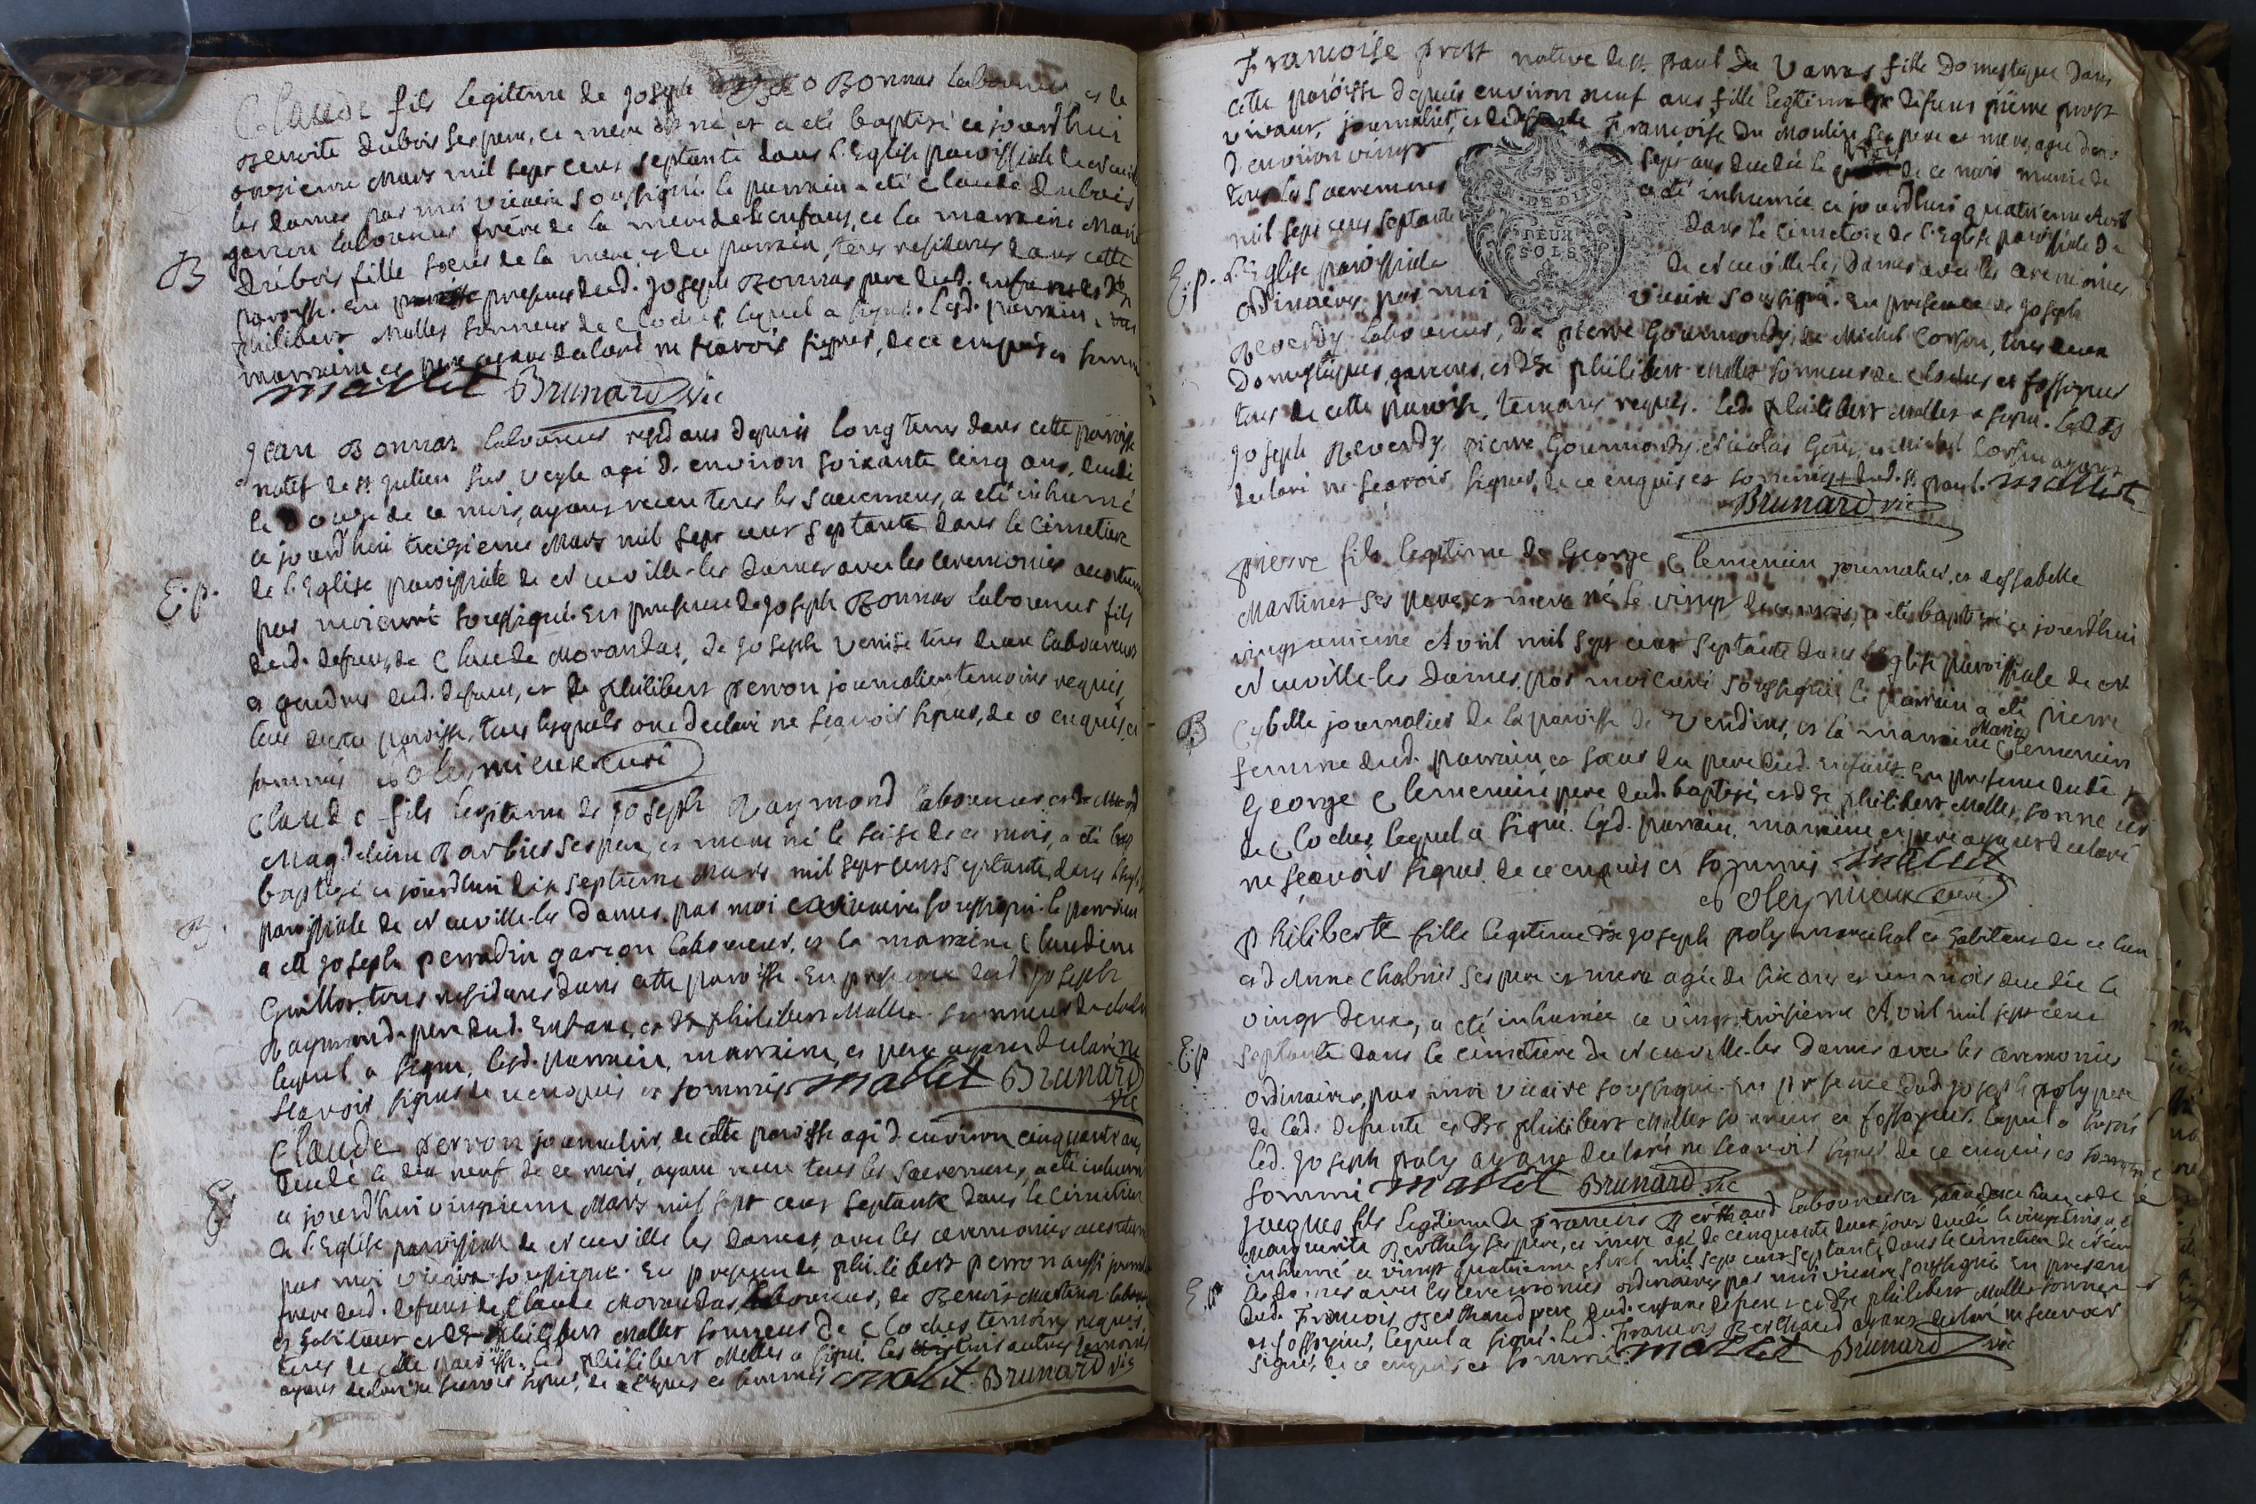 Claude fils legitime de Joseph Bonnas laboureur et de
Benoite Dubois ses pere, et mere né et a eté baptisé ce jourd'hui
onzieme Mars mil sept cens septante dans l'Eglise paroissiale de Neuville
les dames par moi vicaire soussigné. le parrain a eté Claude Dubois
garçon laboureur frère de la mere de l'enfant, et la marraine Marie
B
Dubois fille soeur de la mere, et du parrain, tous residans dans cette
paroisse. En presence dud. Joseph Bonnas pere dud. enfant et de
philibert Mallet sonneur de cloches, lequel a signé. Lesd. parrain,
marraine et pere ayant declaré ne sçavoir signer, de ce enquis et sommés
Mallet Brunard vic
Jean Bonnas laboureur residant depuis longtems dans cette paroisse
natif de st julien sur veyle agé d'environ soixante cinq ans, decedé
le douze de ce mois, ayant receu tous les sacremens, a eté inhumé
ce jourd'hui treizieme Mars mil sept cens septante dans le cimetiere
E.p.
de l'Eglise paroissiale de Neuville-les Dames avec les ceremonies accoutum
par moi curé soussigné. En presence de Joseph Bonnas laboureur fils
dud. defunt, de Claude Morandas, de Joseph Venise tous deux laboureurs
et gendres dud. defunt, et de philibert perron journalier temoins requis,
tous de cette paroisse, tous lesquels ont declaré ne sçavoir signer, de ce enquis, et
sommés Dolesmieux curé
Claude fils legitime de Joseph Raymond laboureur et de
Magdeleine Barbier ses pere, et mere né le seise de ce mois, a eté
baptisé ce jourd'hui dix septieme Mars mil sept cens septante, dans l'Eglise
B.
paroissiale de Neuville-les Dames, par moi vicaire soussigné. le parrain
a eté Joseph perradin garçon laboureur, et la marraine Claudine
Guillot, tous residans dans cette paroisse. En presence dud. Joseph
Raymond pere dud. Enfant, et de philibert Mallet sonneur de cloches
lequel a signé, lesd. parrain, marraine, et pere ayant declaré ne
sçavoir signer de ce enquis et sommés Mallet Brunard
vic
Claude perron journalier, de cette paroisse agé d'environ cinquante ans
decedé le dix neuf de ce mois, ayant receu tous les sacremens, a eté inhumé
E
ce jourd'hui vingtieme Mars mil sept cens septante dans le cimetiere
de l'Eglise paroissiale de Neuville les dames, avec les ceremonies accoutum
par moi vicaire soussigné. En presence de philibert perron aussi journalier
frere dud. defunt de Claude Morandas, laboureur, de Benoit Martinet
et de philibert Mallet sonneur de cloches temoins requis,
tous de cette paroisse. led. philibert Mallet a signé. les trois autres temoins
ayant declaré ne sçavoir signer, de ce enquis et sommés Mallet. Brunard vic
Francoise prost native de st. paul de Varras fille Domestique dans
cette paroisse depuis environ neuf ans fille legitime de defunt pierre prost
vivant, journalier, et de Francoise du Moulin ses pere et mere, agée
d'environ vingt sept ans decedée le de ce mois munie de
tous les sacremens a eté inhumée ce jourd'hui quatrieme Avril
DEUX
SOLS
mil sept cens septante dans le cimetiere de l'Eglise paroissiale de
E.p.
l'Eglise paroissiale de Neuville-les Dames avec les ceremonies
ordinaires par moi vicaire soussigné. En presence de Joseph
Reverdy laboureur, de pierre Gourmondy, de Michel Corsin, tous deux
Domestiques, garçons, et de philibert Mallet sonneur de cloches et fossoyeur
tous de cette paroisse, temoins requis. Led. philibert Mallet a signé. Lesd.
Joseph Reverdy, pierre Gourmondy, et Michel Corsin ayant
declaré ne sçavoir signer, de ce enquis et sommés dud. st paul. Mallet
Brunard vic
pierre fils legitime de George Clemencin journalier, et d'Isabelle
Martinet ses pere, et mere né le vingt de ce mois, a eté baptisé ce jourd'hui
vingt unieme Avril mil sept cens septante dans l'Eglise paroissiale de
Neuville-les Dames, par moi curé soussigné, le parrain a eté pierre
B
Cybelle journalier de la paroisse de Vendins, et la marraine Marie Clemencin
femme dud. parrain et soeur du pere dud. enfant. En presence dudit
George Clemencin pere dud. baptisé, et de philibert Mallet, sonneur
de cloches, lequel a signé. Lesd. parrain, marraine et pere ayant declaré
ne sçavoir signer de ce enquis et sommés Mallet
Dolesmieux curé
philiberte fille legitime de Joseph poly marechal et habitant de ce lieu
et d'Anne Chabrier ses pere et mere agée de six ans et un mois decedée le
vingt deux, a eté inhumée ce vingt troisieme Avril mil sept cens
E.p
septante dans le cimetiere de Neuville-les Dames avec les ceremonies
ordinaires, par moi vicaire soussigné. En presence dud. Joseph poly pere
de lad. defunte et de philibert Mallet sonneur et fossoyeur, lequel a signé
led. Joseph poly ayant declaré ne sçavoir signer de ce enquis et
sommé Mallet Brunard vic
jacques fils legitime de Francois Berthaud laboureur et de
Marguerite Berthely ses pere, et mere agé de cinquante deux jours decedé le vingt trois, a eté
inhumé ce vingt quatrieme Avril mil sept cens septante, dans le cimetiere de Neuville
E.p
les Dames avec les ceremonies ordinaires par moi vicaire soussigné En presence
dud. Francois Berthaud pere dud. enfant defunt et de philibert Mallet sonneur
et fossoyeur, lequel a signé. Led. Francois Berthaud ayant declaré ne sçavoir
signer, de ce enquis et sommé. Mallet Brunard vic